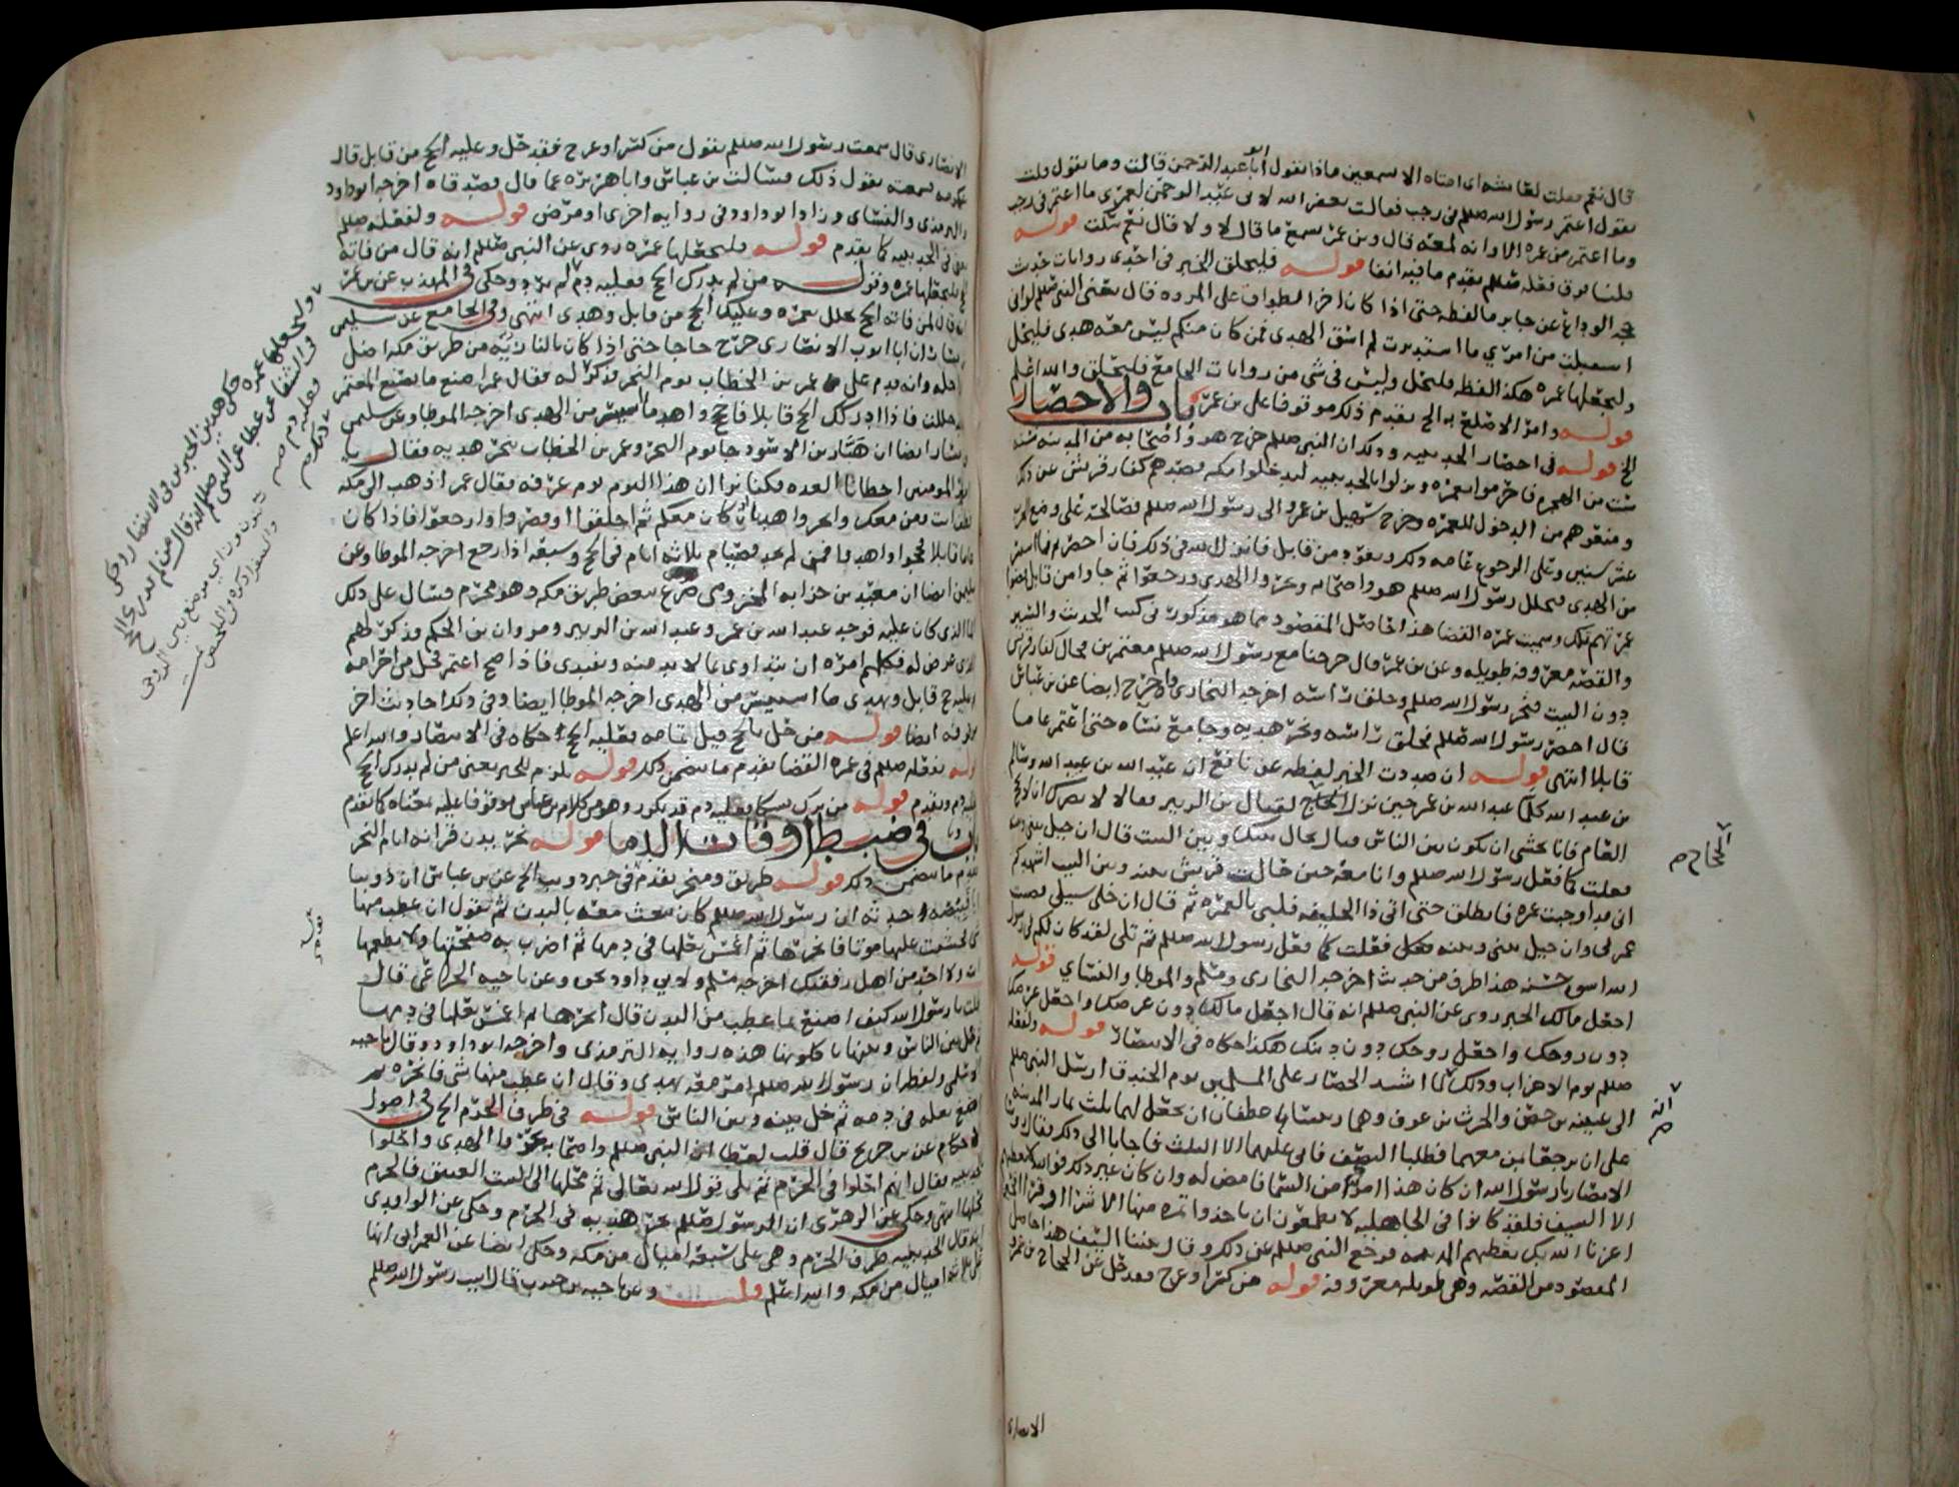 قال نعم فقلت لعائشة اى امتاه الا تسمعين ماذا يقول ابو عبد الرحمن قالت وما يقول قلت
يقول اعتمر رسول الله صللم في رجب فقالت يغفر الله لابي عبد الرحمن لعمري ما اعتمر في رجب
وما اعتمر من عمره الا وانه لمعه قال وبن عمر يسمع ما قال لا ولا قال نعم سكت قوله
فعله صللم تقدم ما فيه انفا قوله فليحلق الخبر في احدى روايات حديث
حجه الوداع عن جابر ما لفظه حتى اذا كان اخر الطواف على المروه قال يعني النبي صللم لو اني
استقبلت من امري ما استدبرت لم اسق الهدي فمن كان منكم ليس معه هدي فليحل
وليجعلها عمره هكذا لفظه فليحل وليس في شي من روايات الجامع فليحلق والله اعلم
قوله وامر الاصلع به الخ تقدم ذلك موقوفا على بن عمر باب والاحصار
الخ قوله في احصار الحديبيه وذلك ان النبي صللم خرج هو واصحابه من المدينه سنه
ست من الهجره فاحرموا بعمره ونزلوا بالحديبيه ليدخلوا مكه فصدهم كفار قريش عن ذلك
ومنعوهم من الدخول للعمره وخرج سهيل بن عمرو الى رسول الله صللم فصالحه على وضع الحرب
عشر سنين وعلى الرجوع عامه ذلك ويعود من قابل فانزل الله في ذلك فان احصرتم فما استيسر
من الهدي فتحلل رسول الله صللم هو واصحابه ونحروا الهدي ورجعوا ثم جاوا من قابل فقضوا
عمرتهم تلك وسميت عمره القضا هذا حاصل المقصود مما هو مذكور في كتب الحديث والسير
والقصه معروفه طويله وعن بن عمر قال خرجنا مع رسول الله صللم معتمرين فحال كفار قريش
دون البيت فنحر رسول الله صللم وحلق راسه اخرجه البخاري واخرج ايضا عن بن عباس
قال احصر رسول الله صللم فحلق راسه ونحر هديه وجامع نساه حتى اعتمر عاما
قابلا انتهى قوله ان صددت الخبر لفظه عن نافع ان عبد الله بن عبد الله وسالم
بن عبد الله كلما عبد الله بن عمر حين نزل الحجاج لقتال بن الزبير فقالا لا يضرك ان لا تحج
العام فانا نخشى ان يكون بين الناس قتال يحال بينك وبين البيت قال ان حيل بيني وبينه
فعلت كما فعل رسول الله صللم وانا معه حين حالت قريش بينه وبين البيت اشهدكم
اني قد اوجبت عمره فانطلق حتى اتى ذا الحليفه فلبى بالعمره ثم قال ان خلي سبيلي قضيت
عمرتي وان حيل بيني وبينه فعلت كما فعل رسول الله صللم ثم تلى لقد كان لكم في رسول
الله اسوه حسنه هذا طرف من حديث اخرجه البخاري ومسلم والموطا والنسائي قوله
اجعل مالك الخبر روي عن النبي صللم انه قال اجعل مالك دون عرضك واجعل عرضك
دون روحك واجعل روحك دون دينك هكذا حكاه في الانتصار قوله ولفعله
صللم يوم الاحزاب وذلك لما اشتد الحصار على المسلمين يوم الخندق ارسل النبي صللم
الى عيينه بن حصن والحرث بن عوف وهما رئيسا غطفان ان يجعل لهما ثلث ثمار المدينه
على ان يرجعا بمن معهما فطلبا النصف فابى عليهما الا الثلث فاجابا الى ذلك فقال
الانصار يا رسول الله ان كان هذا امر من السما فامض له وان كان غير ذلك فوالله لا نعطيهم
الا السيف فلقد كانوا في الجاهليه لا يطمعون ان ياخذوا تمره منها الا شرا او قرا
اعزنا الله بك نعطيهم الدنيه فرجع النبي صللم عن ذلك وقال بيننا السيف هذا حاصل
المقصود من القصه وهي طويله معروفه قوله من كسر او عرج فقد حل عن الحجاج بن عمرو
الحجاج م
الانصارى
الانصارى قال سمعت رسول الله صللم يقول من كسر او عرج فقد حل وعليه الحج من قابل قال
عكرمه سمعته يقول ذلك فسالت بن عباس وابا هريره عما قال فصدقاه اخرجه ابو داود
والترمذي والنسائي وزاد ابو داود في روايه اخرى او مرض قوله ولفعله صللم
يعني في الحديبيه كما تقدم قوله فليجعلها عمره روي عن النبي صللم انه قال من فاته
الحج فليجعلها عمره وقوله من لم يدرك الحج فعليه دم لم يرد وحكى في المهذب عن بن عمر
انه قال لمن فاته الحج تحلل بعمره وعليك الحج من قابل وهدي انتهى وفي الجامع عن سليمن
بن يسار ان ابا ايوب الانصاري خرج حاجا حتى اذا كان بالنازيه من طريق مكه اضل
رواحله وانه قدم على عمر بن الخطاب يوم النحر فذكر له فقال عمر اصنع ما يصنع المعتمر
قد حللت فاذا ادركك الحج قابلا فاحج واهد ما استيسر من الهدي اخرجه الموطا وعن سليمن
بن يسار ايضا ان هبار بن الاسود جا يوم النحر وعمر بن الخطاب ينحر هديه فقال يا
امير المومنين اخطانا العده فكنا نرى ان هذا اليوم يوم عرفه فقال عمر اذهب الى مكه
فطف انت ومن معك وانحروا هديا ان كان معكم ثم احلقوا او قصروا وارجعوا فاذا كان
عاما قابلا فحجوا واهدوا فمن لم يجد فصيام ثلاثه ايام في الحج وسبعه اذا رجع اخرجه الموطا وعن
سليمن ايضا ان معبد بن حزابه المخزومي صرع ببعض طريق مكه وهو محرم فسال على ذلك
الما الذي كان عليه فوجد عبد الله بن عمر وعبد الله بن الزبير ومروان بن الحكم وذكر لهم
الذي عرض له فكلهم امره ان يتداوى بما لا بد منه ويفتدي فاذا صح اعتمر فحل من احرامه
ثم عليه حج قابل ويهدي ما استيسر من الهدي اخرجه الموطا ايضا وفي ذلك احاديث اخر
موقوفه ايضا قوله من حل بالحج قبل تمامه فعليه الحج حكاه في الانتصار والله اعلم
قوله بفعله صللم في عمره القضا تقدم ما يتضمن ذلك قوله يلزم للخبر يعني من لم يدرك الحج
فعليه دم وتقدم قوله من ترك نسكا فعليه دم قد تكرر وهو من كلام بن عباس موقوفا عليه بمعناه كما تقدم
باب في ضبط اوقات الدما قوله نحر بدن قرانه ايام النحر
تقدم ما يتضمن ذلك قوله طريق ومنحر تقدم في خبر دويب الخ عن بن عباس ان ذويبا
ابا قبيصه حدثه ان رسول الله صللم كان يبعث معه بالبدن ثم يقول ان عطب منها
شي فخشيت عليها موتا فانحرها ثم اغمس نعلها في دمها ثم اضرب به صفحتها ولا تطعمها
انت ولا احد من اهل رفقتك اخرجه مسلم ولابي داود نحوه وعن ناجيه الخزاعي قال
قلت يا رسول الله كيف اصنع بما عطب من البدن قال انحرها ثم اغمس نعلها في دمها
ثم خل بين الناس وبينها ياكلونها هذه روايه الترمذي واخرجه ابو داود وقال ناجيه
الاسلمي ولفظه ان رسول الله صللم امر معه بهدي وقال ان عطب منها شي فانحره ثم
اصبغ نعله في دمه ثم خل بينه وبين الناس قوله في طرف الحرم الخ في اصول
الاحكام عن بن جريج قال قلت لعطا ان النبي صللم واصحابه نحروا الهدي واحلوا
بالحديبيه فقال انهم احلوا في الحرم ثم تلى قول الله تعالى ثم محلها الى البيت العتيق فالحرم
محلها انتهى وحكى عن الزهري ان رسول الله صللم نحر هديه في الحرم وحكى عن الواقدي
انه قال الحديبيه طرف الحرم وهي على تسعه اميال من مكه وحكى ايضا عن العمراني انها
على ثلاثه اميال من مكه والله اعلم قلت وعن ناجيه بن جندب قال اتيت رسول الله صللم